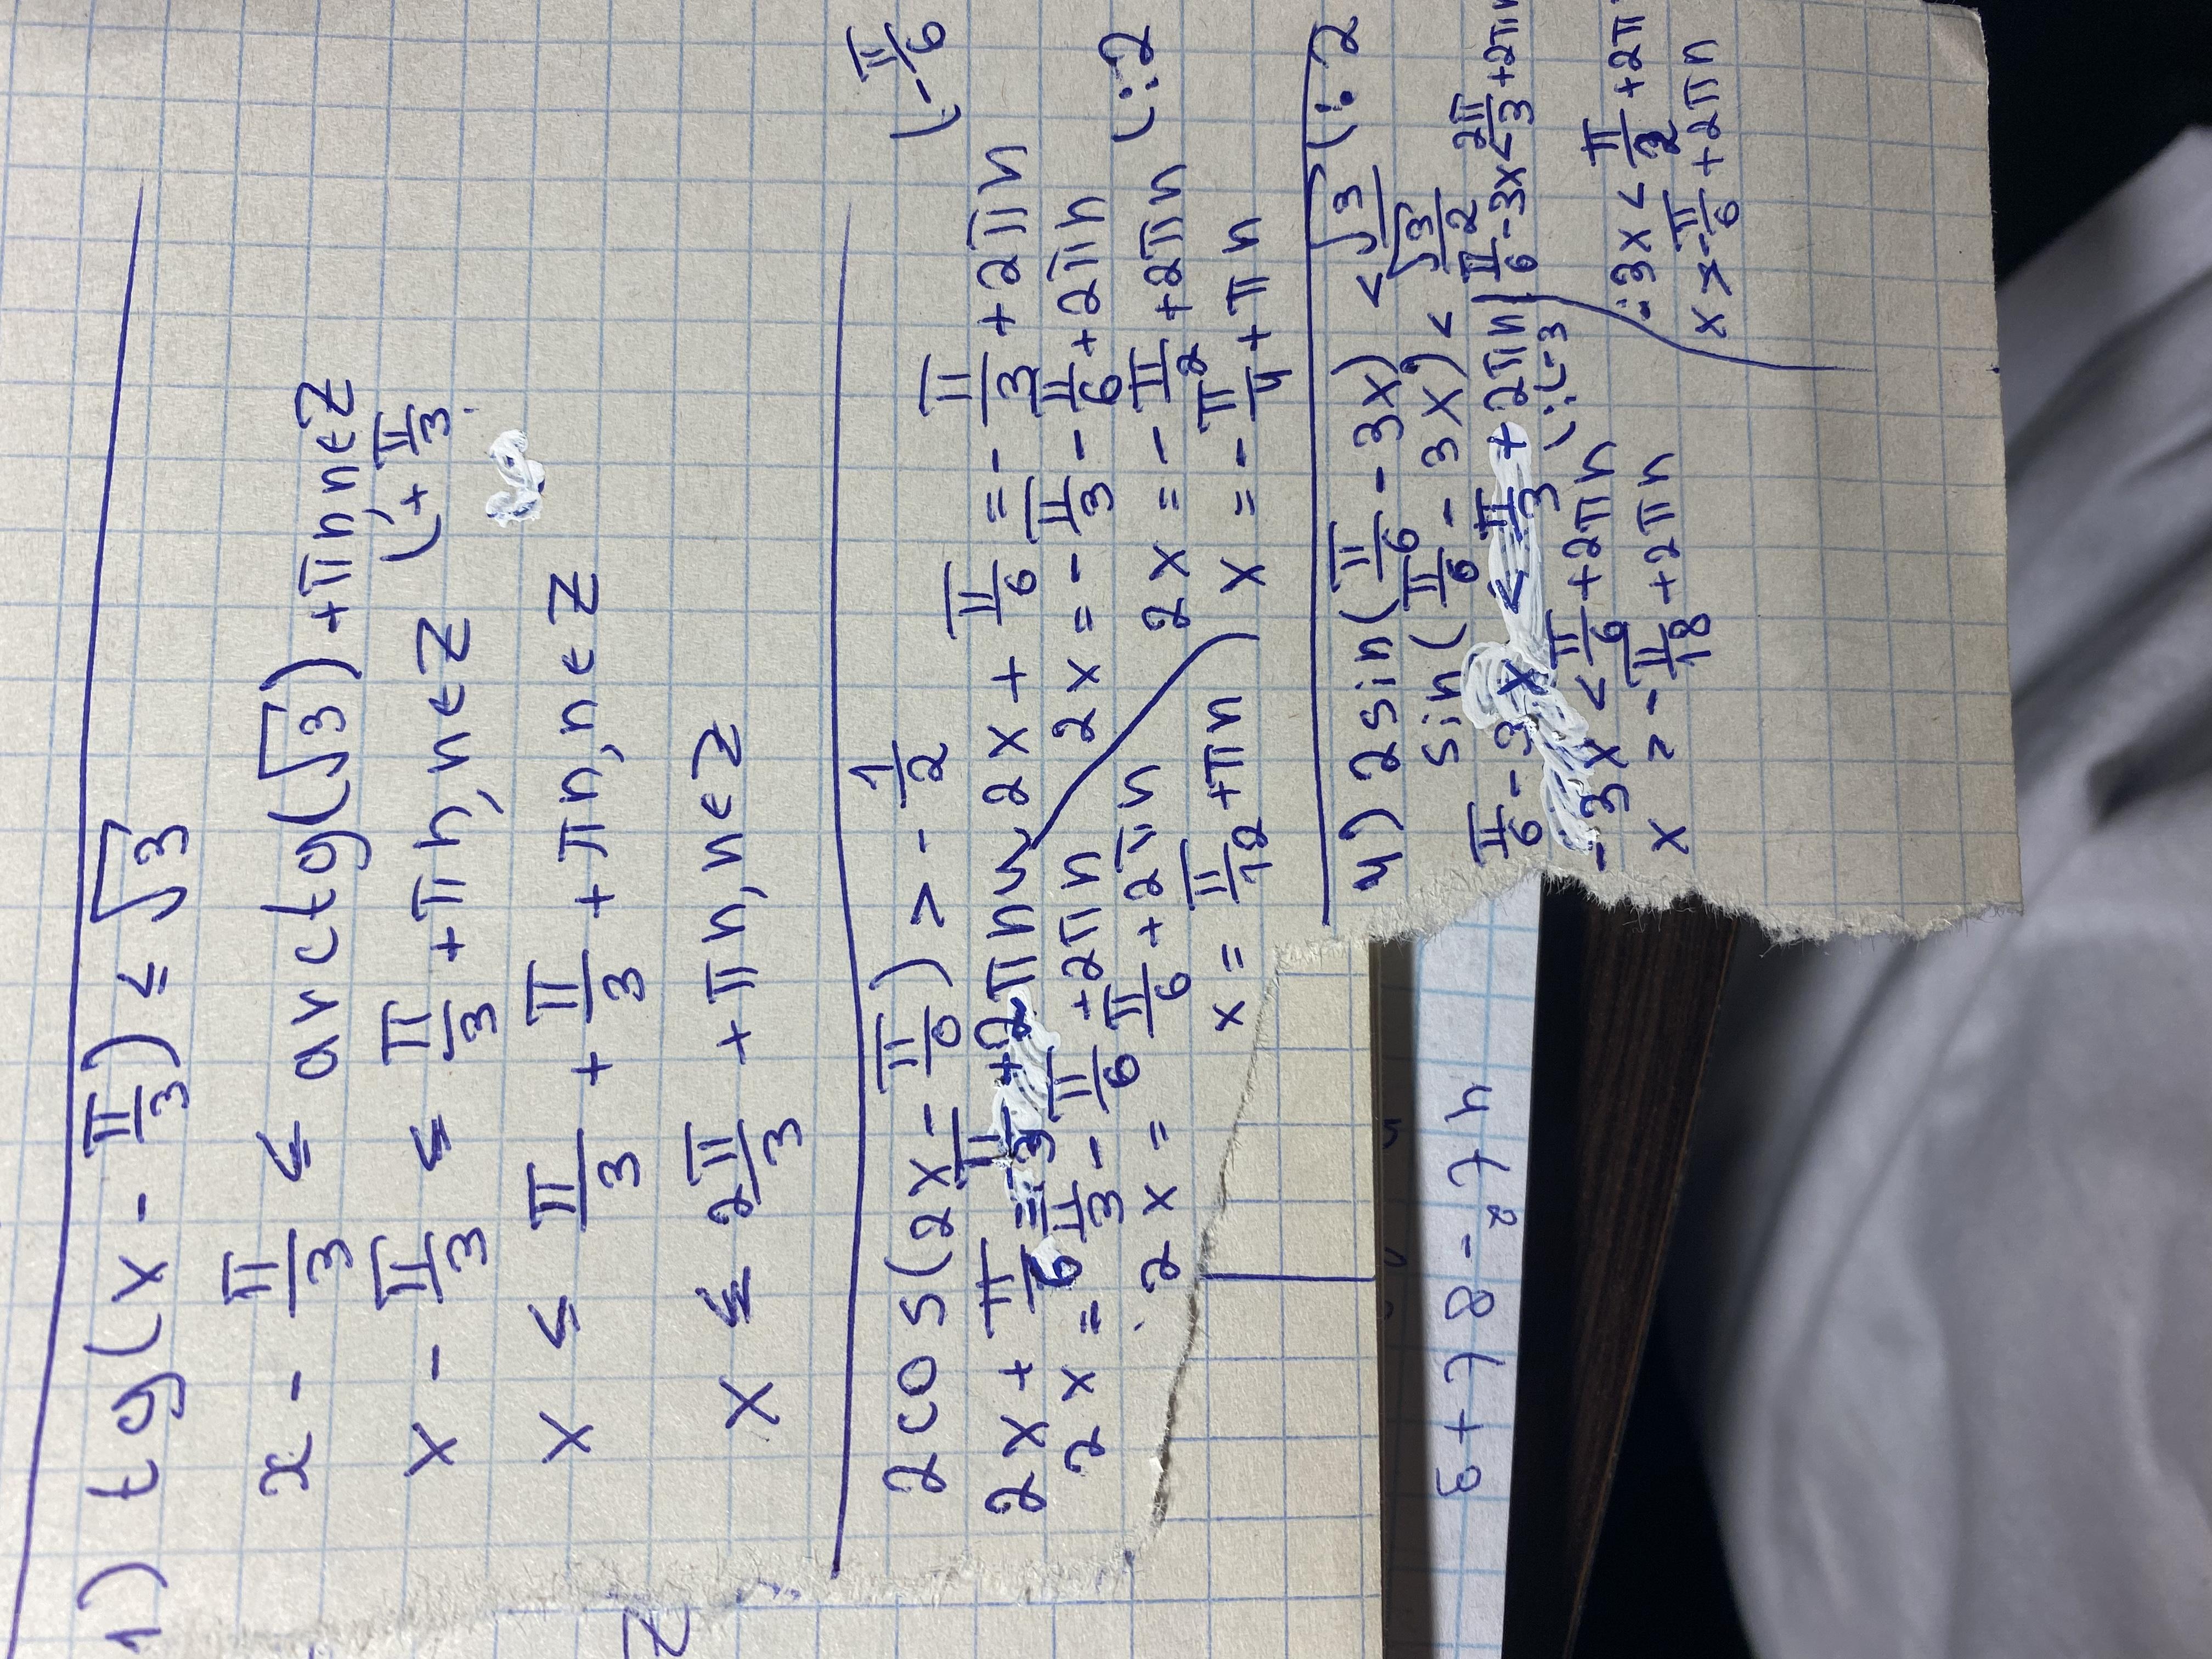 1) tg(x - π/3) ≤ √3
x - π/3 ≤ arctg(√3) + πn, n∈Z
x - π/3 ≤ π/3 + πn, n∈Z (+ π/3
x ≤ π/3 + π/3 + πn, n∈Z
x ≤ 2π/3 + πn, n∈Z
2cos(2x - π/6) > - 1/2
2x + π/6 = π/3 + 2πn
2x + π/6 = - π/3 + 2πn (- π/6
2x = π/3 - π/6 + 2πn
2x = - π/3 - π/6 + 2πn
2x = π/6 + 2πn
2x = - π/2 + 2πn (:2
x = π/12 + πn
x = - π/4 + πn
4) 2sin(π/6 - 3x) < √3 (:2
sin(π/6 - 3x) < √3/2
π/6 - 3x < π/3 + 2πn
π/6 - 3x < 2π/3 + 2πn
-3x < π/6 + 2πn (:(-3
-3x < π/2 + 2π
x > - π/18 + 2πn
x > - π/6 + 2πn
Z
3+7·8-2